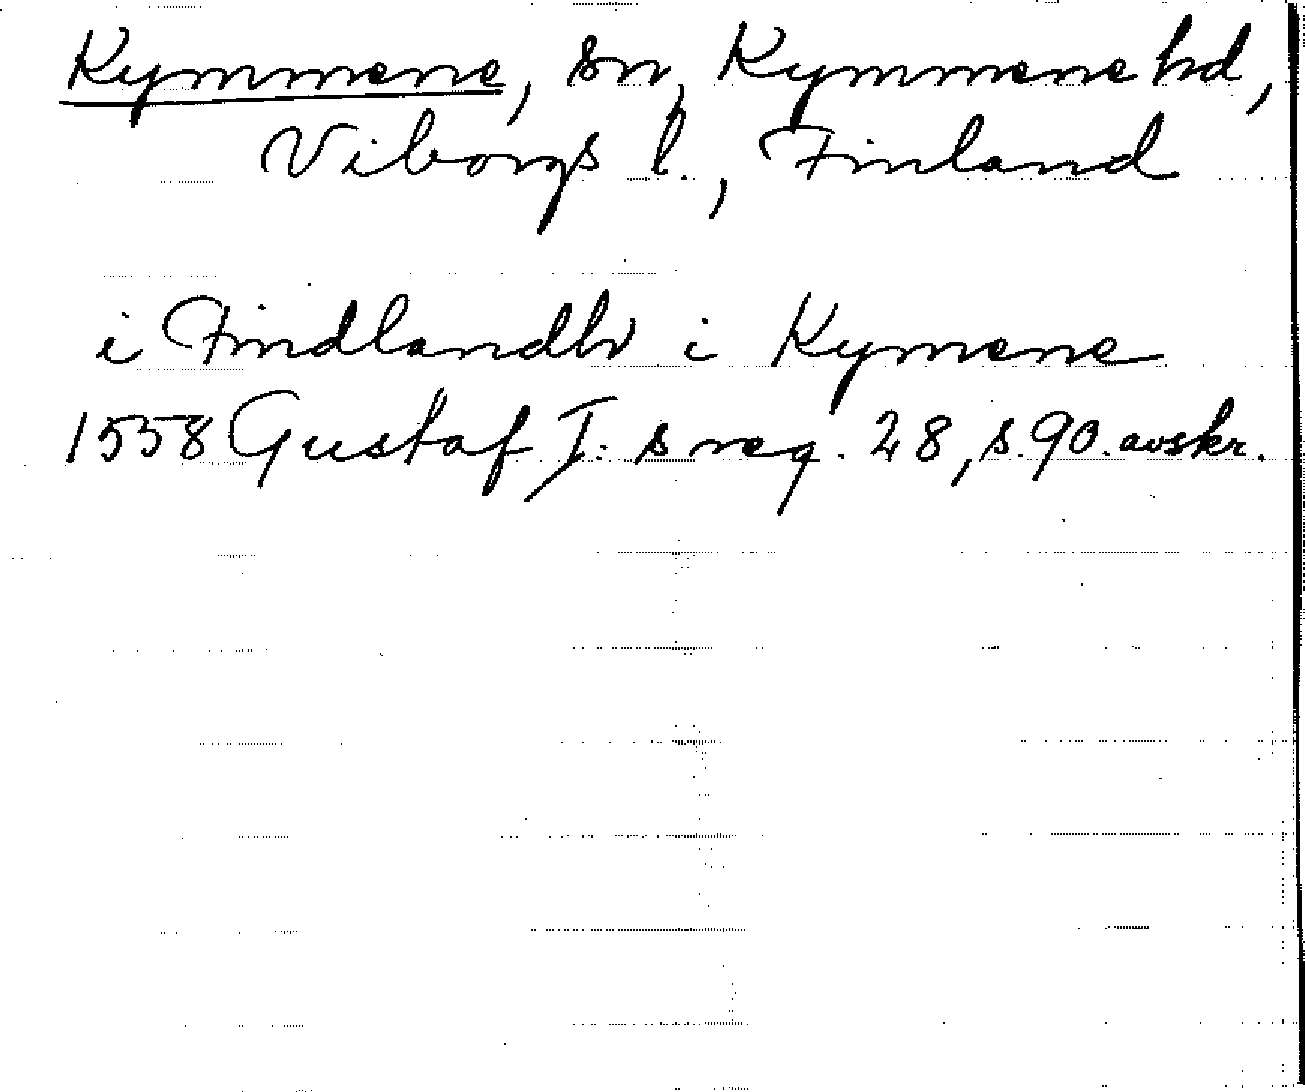 Kymmene, sn, Kymmene hd,
Viborgs l., Finland
i Findlandh i Kymene
1558 Gustaf I: s reg. 28, s. 90. avskr.